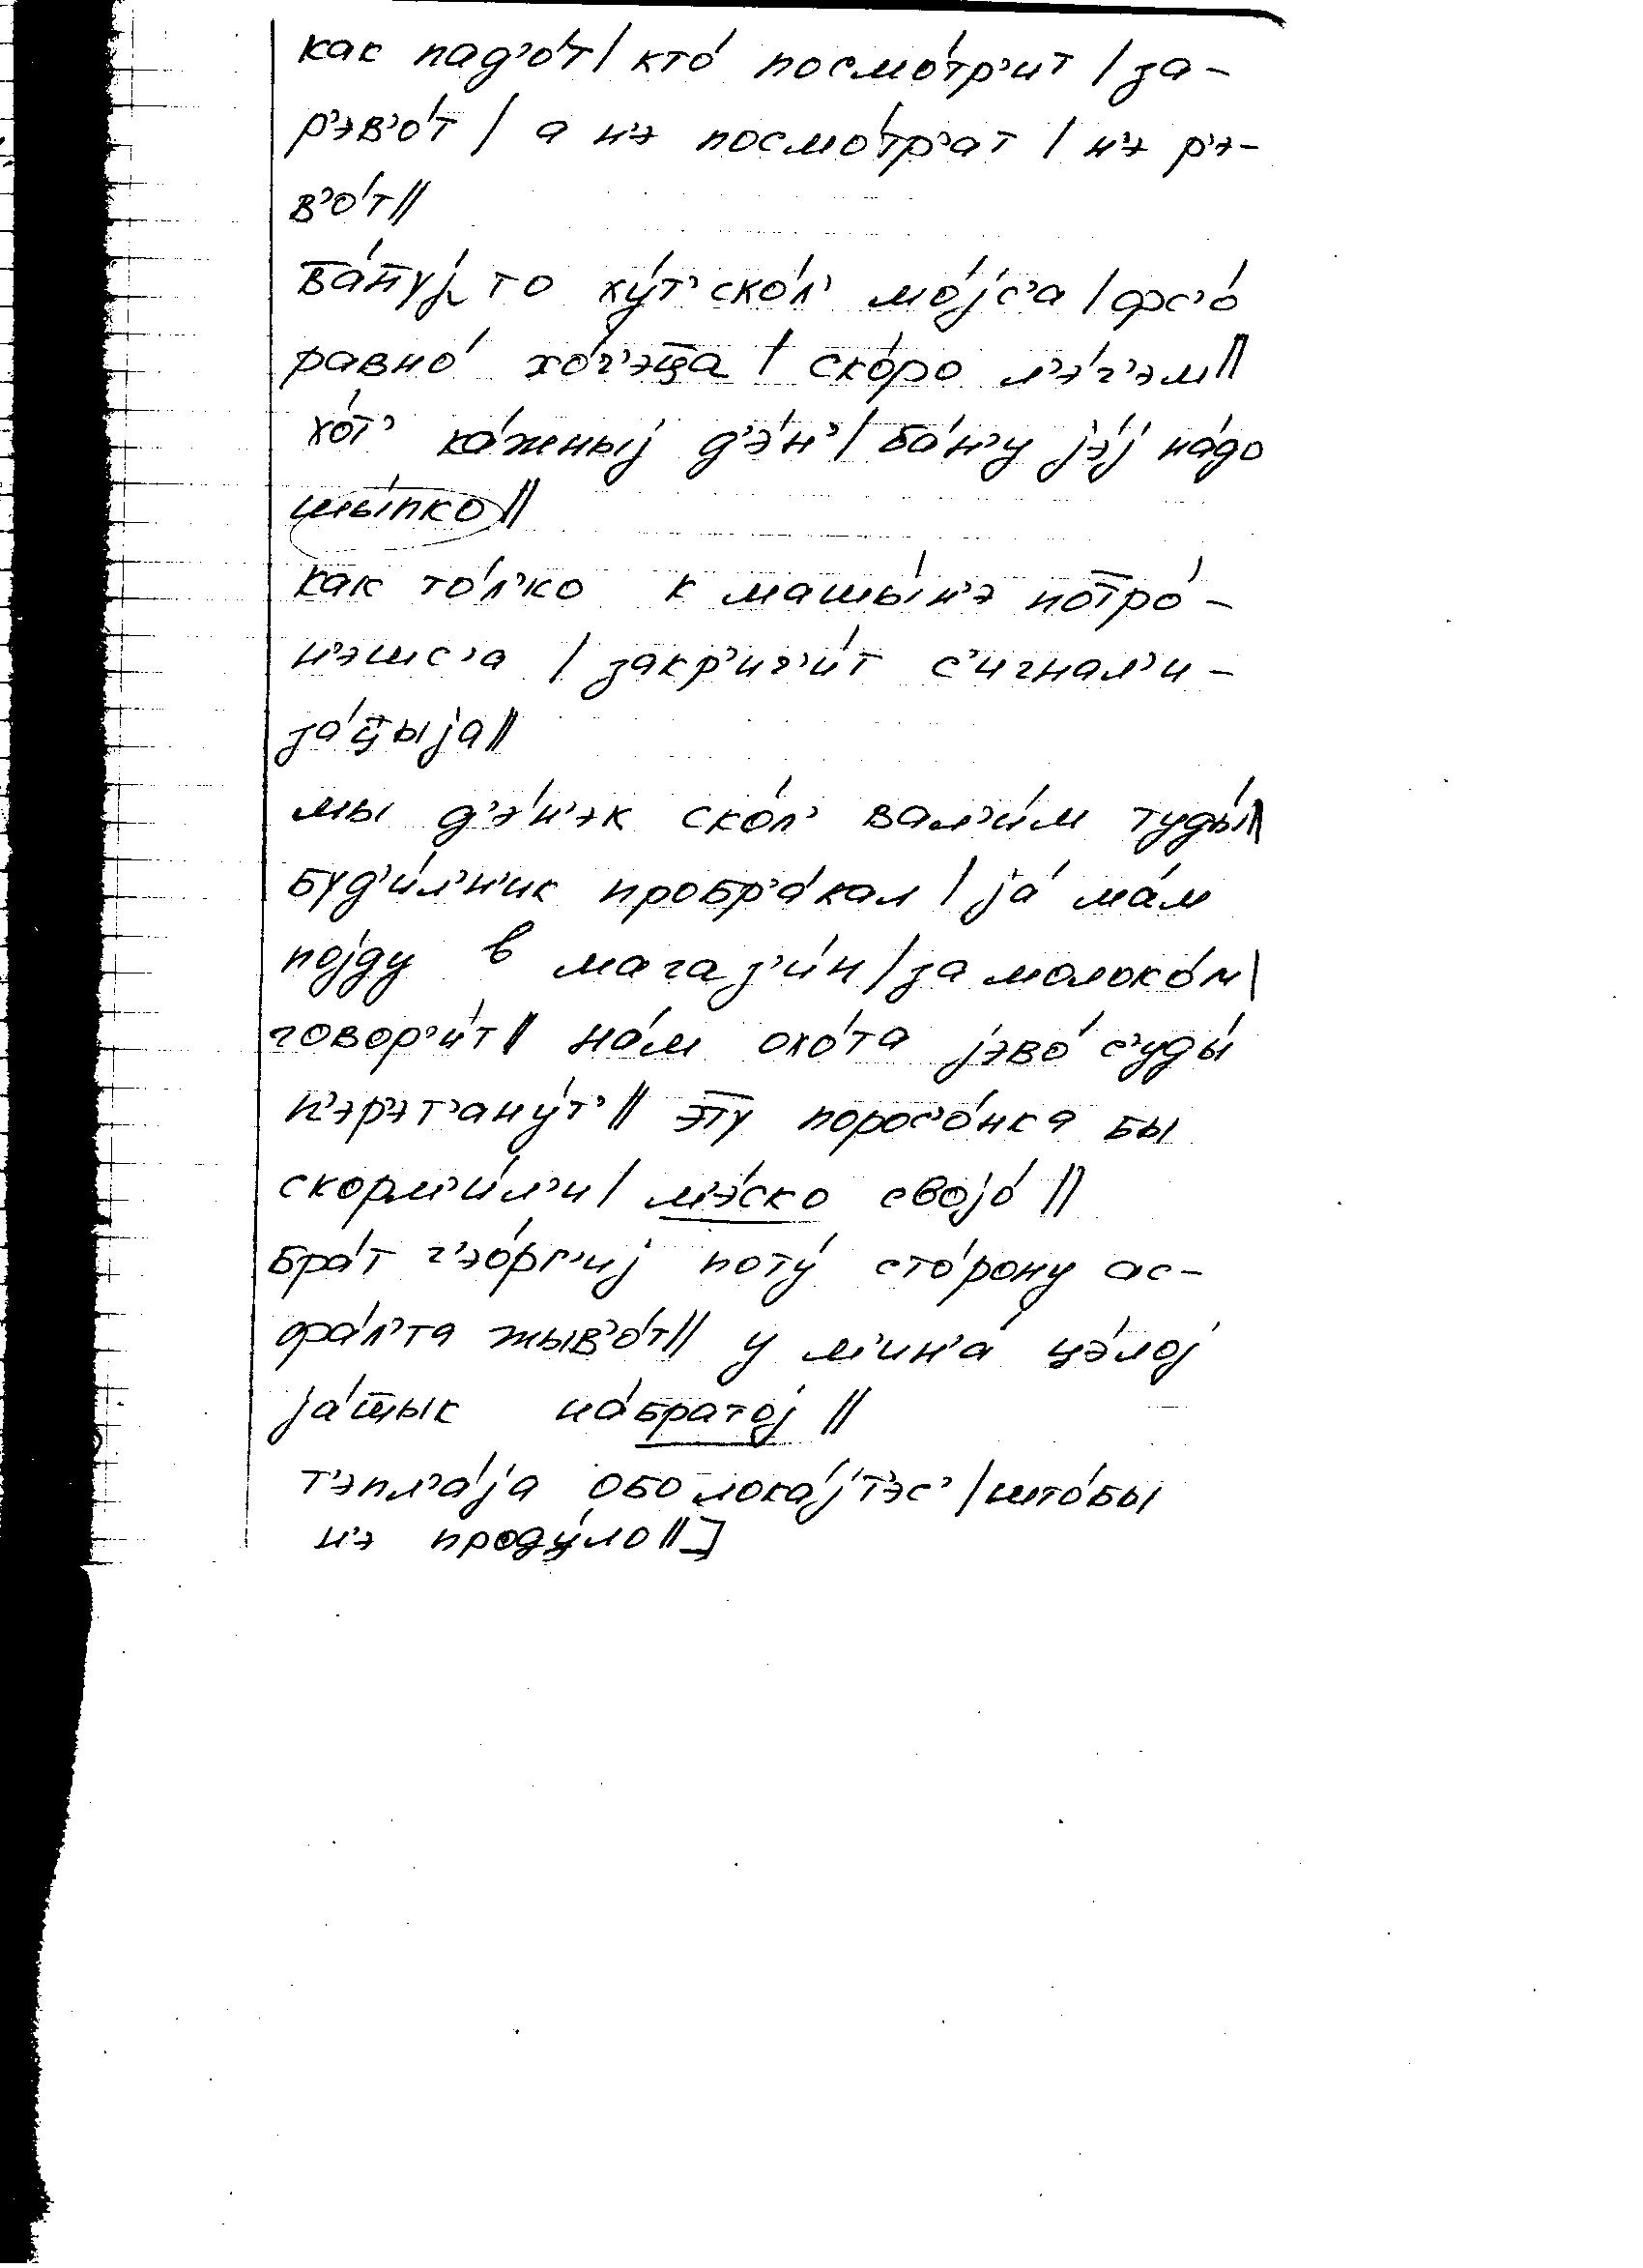 как пад’о́т / кто́ посмо́тр’ит / за-
р’эв’о́т / а н’э посмо́тр’ат / н’э р’э-
в’о́т //
то ху́т’ ско́л’ мо́јс’а / фс’о́
равно́ хо́ч’эц̅а / ско́ро л’э́ч’эм //
хо́т’ ка́жныј д’э́н’ / ба́н’у јэ́ј на́до
шы́пко //
как то́л’ко к машы́н’э потро́-
н’эшс’а / закр’ич’и́т с’игнал’и-
за́ц̅ыја //
мы д’э́н’эк ско́л’ вал’и́м туды́ //
буд’и́л’н’ик пробр’а́кал / ја́ ма́м
појду в магаз’и́н / за молоко́м /
говор’и́т // на́м охо́та јэво́ с’уды́
п’эр’эт’ану́т’ // эту порос’о́нка бы
скорм’и́л’и / м’э́ско својо́ //
бра́т г’эо́рг’иј поту́ сто́рону ас-
фа́л’та жыв’о́т // у м’ин’а́ цэ́лој
ја́ш̅ык на́братој //
т’эпл’а́ја оболока́јт’эс’ / што́бы
н’э проду́ло // ]